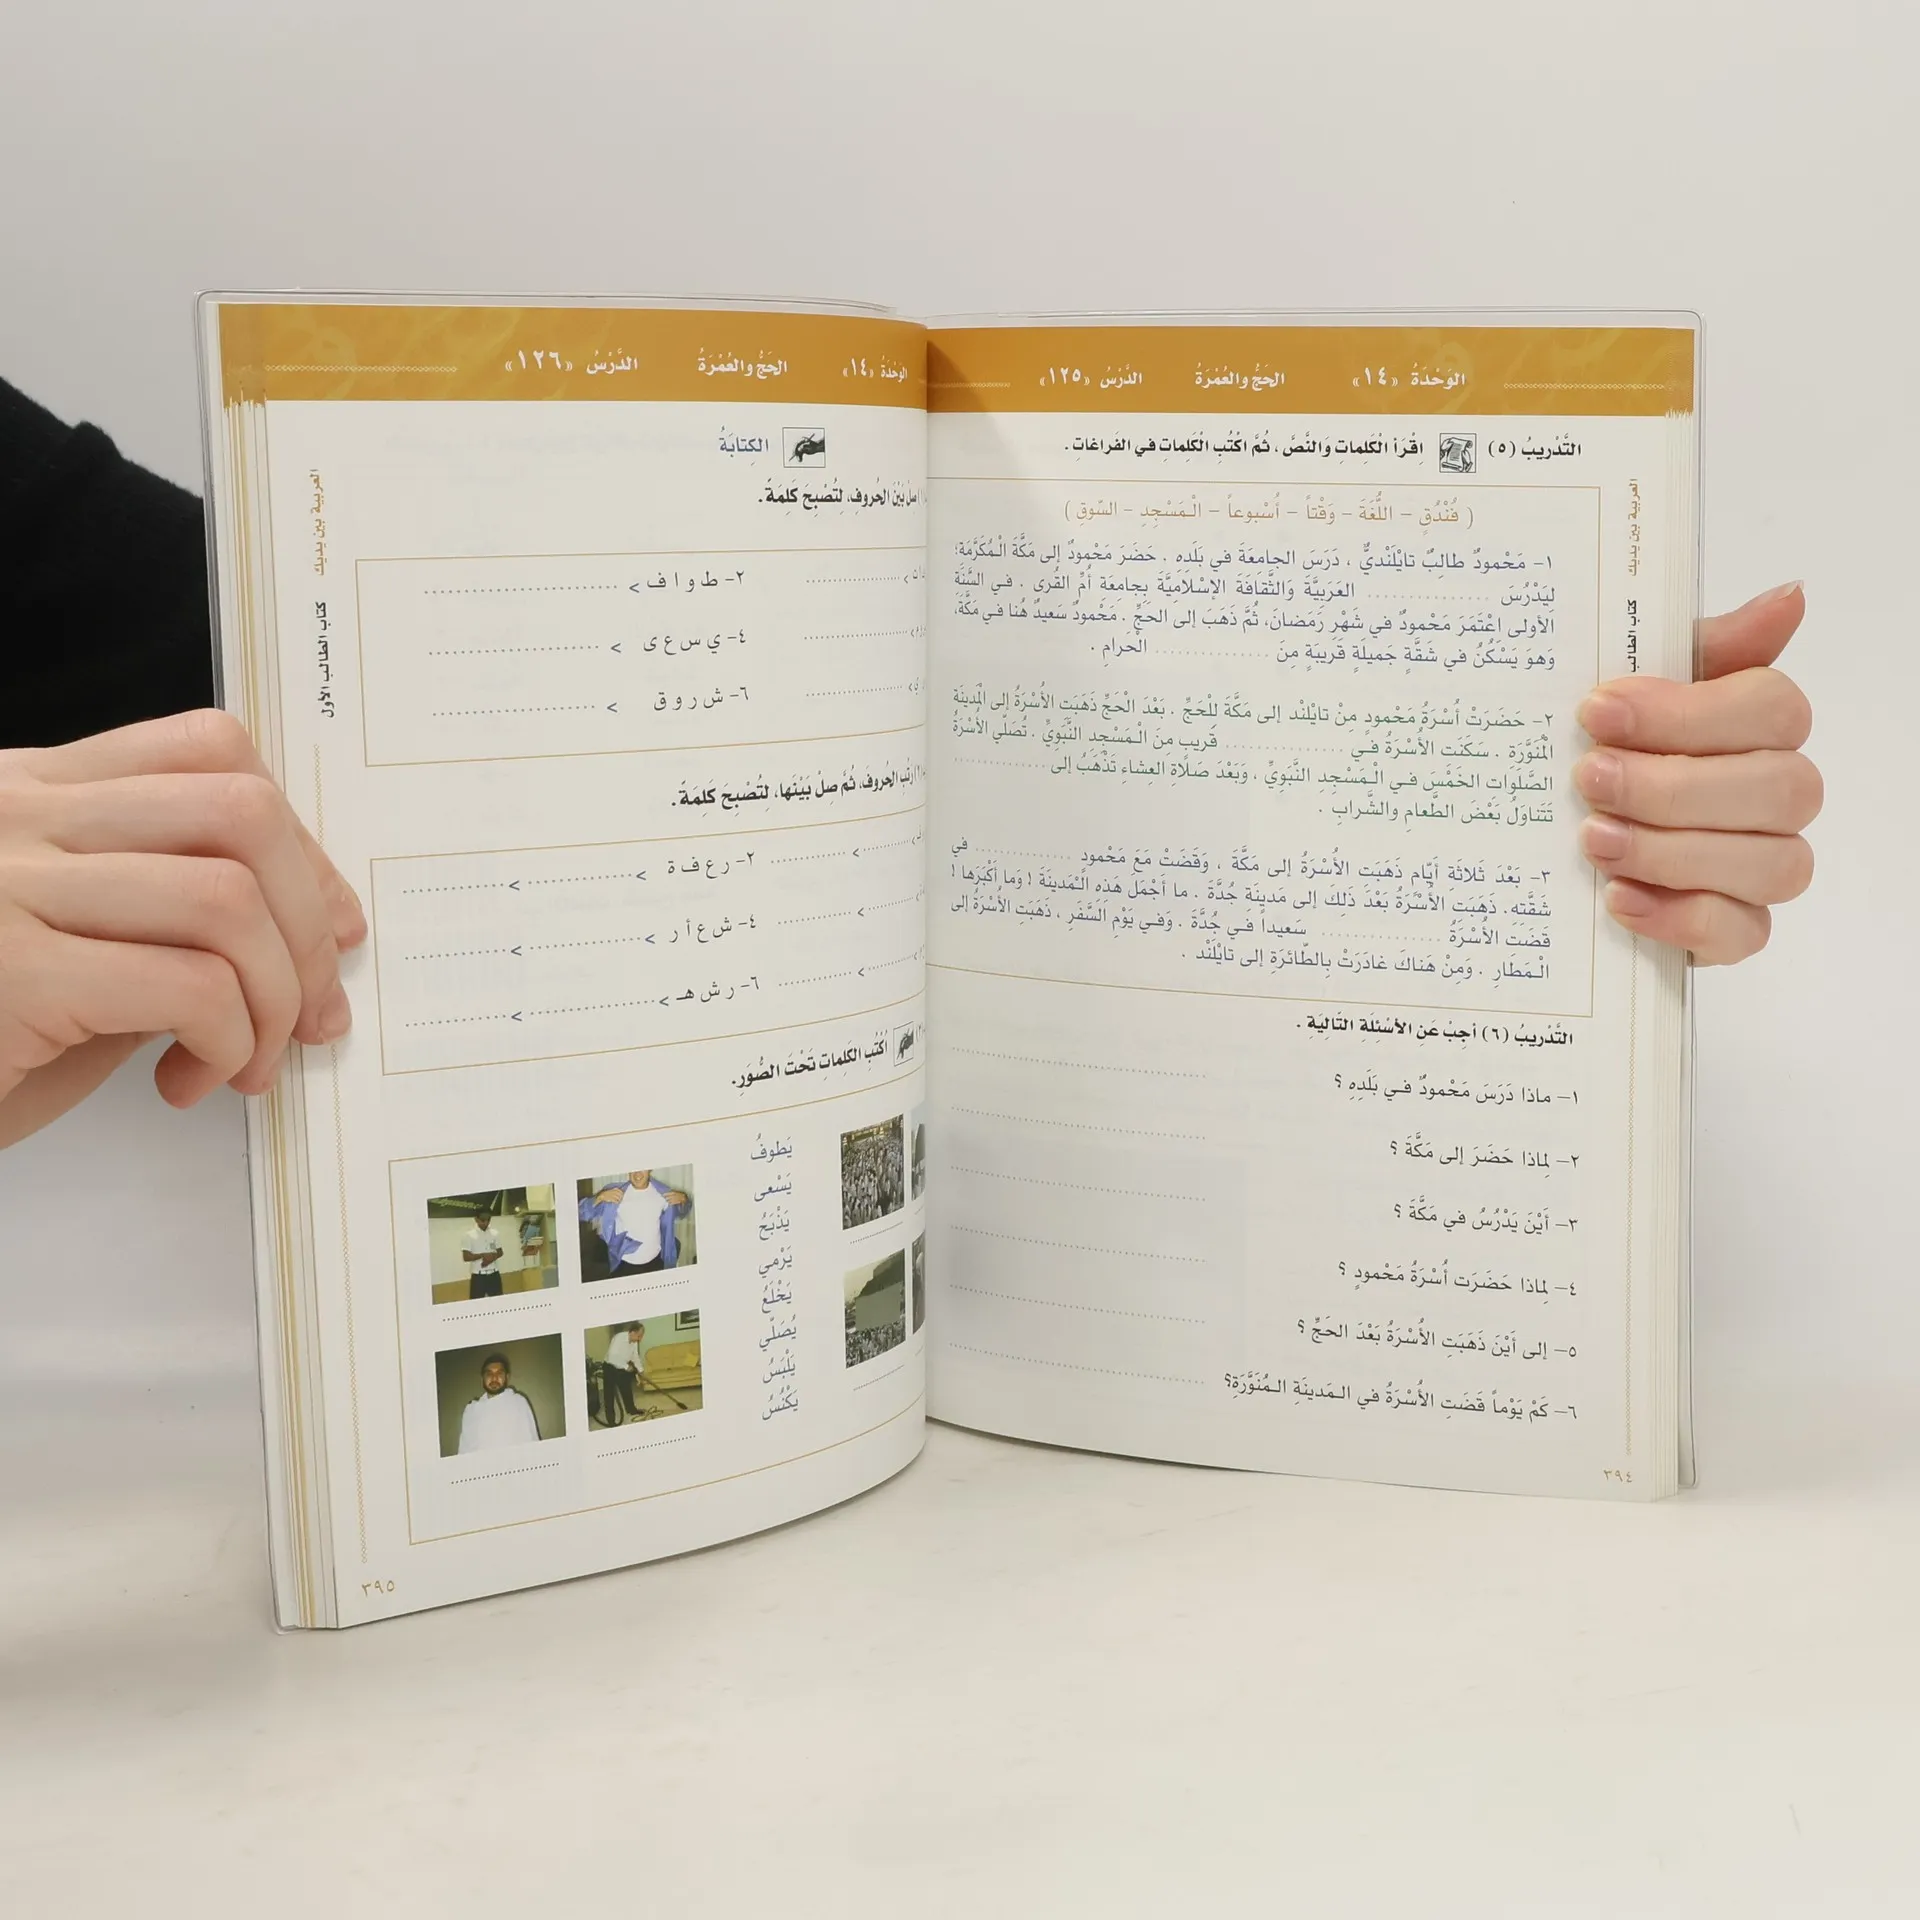 الوَحْدَةُ «١٤» الحَجُّ والعُمْرَةُ الدَّرْسُ «١٢٥»
التَّدْريبُ (٥) اِقْرَأ الْكَلِماتِ وَالنَّصَّ ، ثُمَّ اكْتُبِ الْكَلِماتِ في الفَراغاتِ .
( فُنْدُقٍ – اللُّغَةَ – وَقْتاً – أُسْبوعاً – الْـمَسْجِدِ – السّوقِ )
١- مَحْمودٌ طالِبٌ تايْلَنْديٌّ ، دَرَسَ الجامِعَةَ في بَلَدِهِ . حَضَرَ مَحْمودٌ إلى مَكَّةَ الْـمُكَرَّمَةِ؛
لِيَدْرُسَ ............... العَرَبِيَّةَ وَالثَّقافَةَ الإسْلامِيَّةَ بِجامِعَةِ أُمِّ القُرى . في السَّنَةِ
الأولى اعْتَمَرَ مَحْمودٌ في شَهْرِ رَمَضانَ، ثُمَّ ذَهَبَ إلى الحَجِّ . مَحْمودٌ سَعيدٌ هُنا في مَكَّةَ،
وَهوَ يَسْكُنُ في شَقَّةٍ جَميلَةٍ قَريبَةٍ مِنَ ............... الْحَرامِ .
٢- حَضَرَتْ أُسْرَةُ مَحْمودٍ مِنْ تايْلَنْد إلى مَكَّةَ لِلْحَجِّ . بَعْدَ الْحَجِّ ذَهَبَتِ الأُسْرَةُ إلى الْمَدينَةِ
الْمُنَوَّرَةِ . سَكَنَت الأُسْرَةُ فـي ............... قَريبٍ مِنَ الْـمَسْجِدِ النَّبَوِيِّ . تُصَلّي الأُسْرَةُ
الصَّلَواتِ الخَمْسَ فـي الْـمَسْجِدِ النَّبَوِيِّ ، وَبَعْدَ صَلاةِ العِشاءِ تَذْهَبُ إلى ...............
تَتَناوَلُ بَعْضَ الطَّعامِ والشَّرابِ .
٣- بَعْدَ ثَلاثَةِ أَيّامٍ ذَهَبَتِ الأُسْرَةُ إلى مَكَّةَ ، وَقَضَتْ مَعَ مَحْمودٍ ............... في
شَقَّتِهِ. ذَهَبَتِ الأُسْرَةُ بَعْدَ ذَلِكَ إلى مَدينَةِ جُدَّةَ . ما أَجْمَلَ هَذِهِ الْـمَدينَةَ ! وَما أَكْبَرَها !
قَضَتِ الأُسْرَةُ ............... سَعيداً فـي جُدَّةَ . وَفـي يَوْمِ السَّفَرِ ، ذَهَبَتِ الأُسْرَةُ إلى
الْـمَطارِ . وَمِنْ هَناكَ غادَرَتْ بِالطّائرَةِ إلى تايْلَنْد .
التَّدْريبُ (٦) أجِبْ عَنِ الأسْئِلَةِ التّالِيَةِ .
١- ماذا دَرَسَ مَحْمودٌ فـي بَلَدِهِ ؟
٢- لِماذا حَضَرَ إلى مَكَّةَ ؟
٣- أَيْنَ يَدْرُسُ في مَكَّةَ ؟
٤- لِماذا حَضَرَت أُسْرَةُ مَحْمودٍ ؟
٥- إلى أَيْنَ ذَهَبَتِ الأُسْرَةُ بَعْدَ الحَجِّ ؟
٦- كَمْ يَوْماً قَضَتِ الأُسْرَةُ في الـمَدينَةِ الـمُنَوَّرَةِ؟
العربية بين يديك
كتاب الطالب
٣٩٤
الوَحْدَةُ «١٤» الحَجُّ والعُمْرَةُ الدَّرْسُ «١٢٦»
الكِتابَةُ
صِلْ بَيْنَ الحُروفِ، لِتُصْبِحَ كَلِمَةً.
٢- ط و ا ف > ...............
٤- ي س ع ى > ...............
٦- ش ر و ق > ...............
رَتِّبِ الحُروفَ، ثُمَّ صِلْ بَيْنَها، لِتُصْبِحَ كَلِمَةً.
٢- ر ع ف ة > ............... > ...............
٤- ش ع أ ر > ............... > ...............
٦- ر ش هـ > ............... > ...............
اُكْتُبِ الكَلِماتِ تَحْتَ الصُّوَرِ.
يَطوفُ
يَسْعى
يَذْبَحُ
يَرْمي
يَخْلَعُ
يُصَلّي
يَلْبَسُ
يَكْنُسُ
العربية بين يديك
كتاب الطالب الأول
٣٩٥